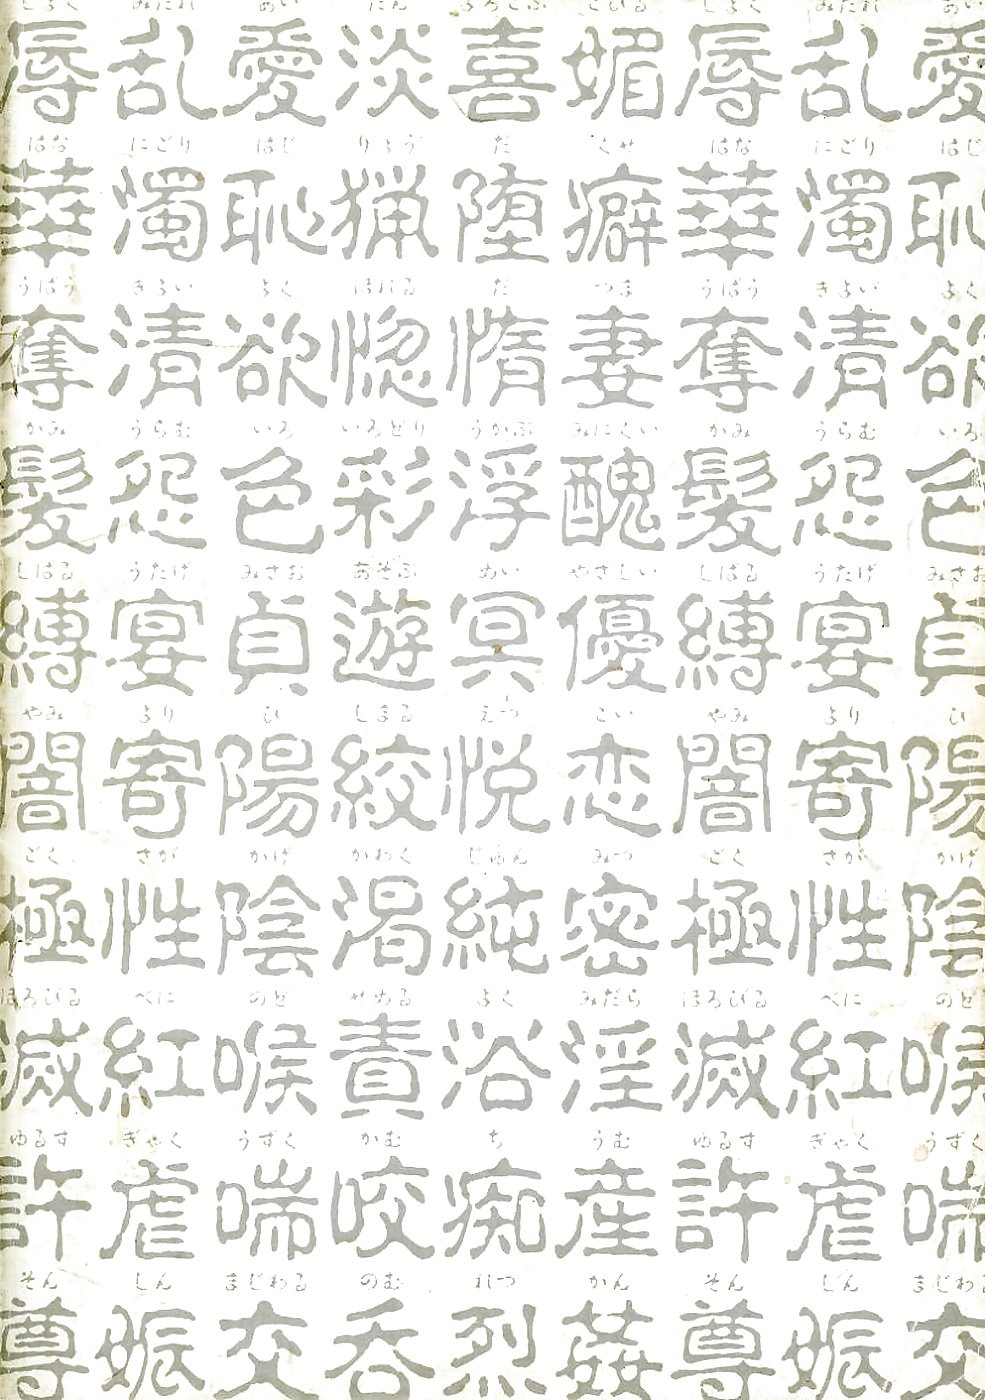 じょく みだれ あい たん よろこぶ こびる じょく みだれ あい
辱 乱 愛 淡 喜 媚 辱 乱 愛
はな にごり はじ りょう だ くせ はな にごり はじ
華 濁 恥 猟 堕 癖 華 濁 恥
うばう きよい よく ほれる だ つま うばう きよい よく
奪 清 欲 惚 惰 妻 奪 清 欲
かみ うらむ いろ いろどり うかぶ みにくい かみ うらむ いろ
髪 怨 色 彩 浮 醜 髪 怨 色
しばる うたげ みさお あそぶ めい やさしい しばる うたげ みさお
縛 宴 貞 遊 冥 優 縛 宴 貞
やみ より ひ しまる えつ こい やみ より ひ
闇 寄 陽 絞 悦 恋 闇 寄 陽
ごく さが かげ かわく じゅん みつ ごく さが かげ
極 性 陰 渇 純 密 極 性 陰
ほろびる べに のど せめる よく みだら ほろびる べに のど
滅 紅 喉 責 浴 淫 滅 紅 喉
ゆるす ぎゃく うずく かむ ち うむ ゆるす ぎゃく うずく
許 虐 喘 咬 痴 産 許 虐 喘
そん しん まじわる のむ れつ かん そん しん まじわる
尊 娠 交 呑 烈 姦 尊 娠 交